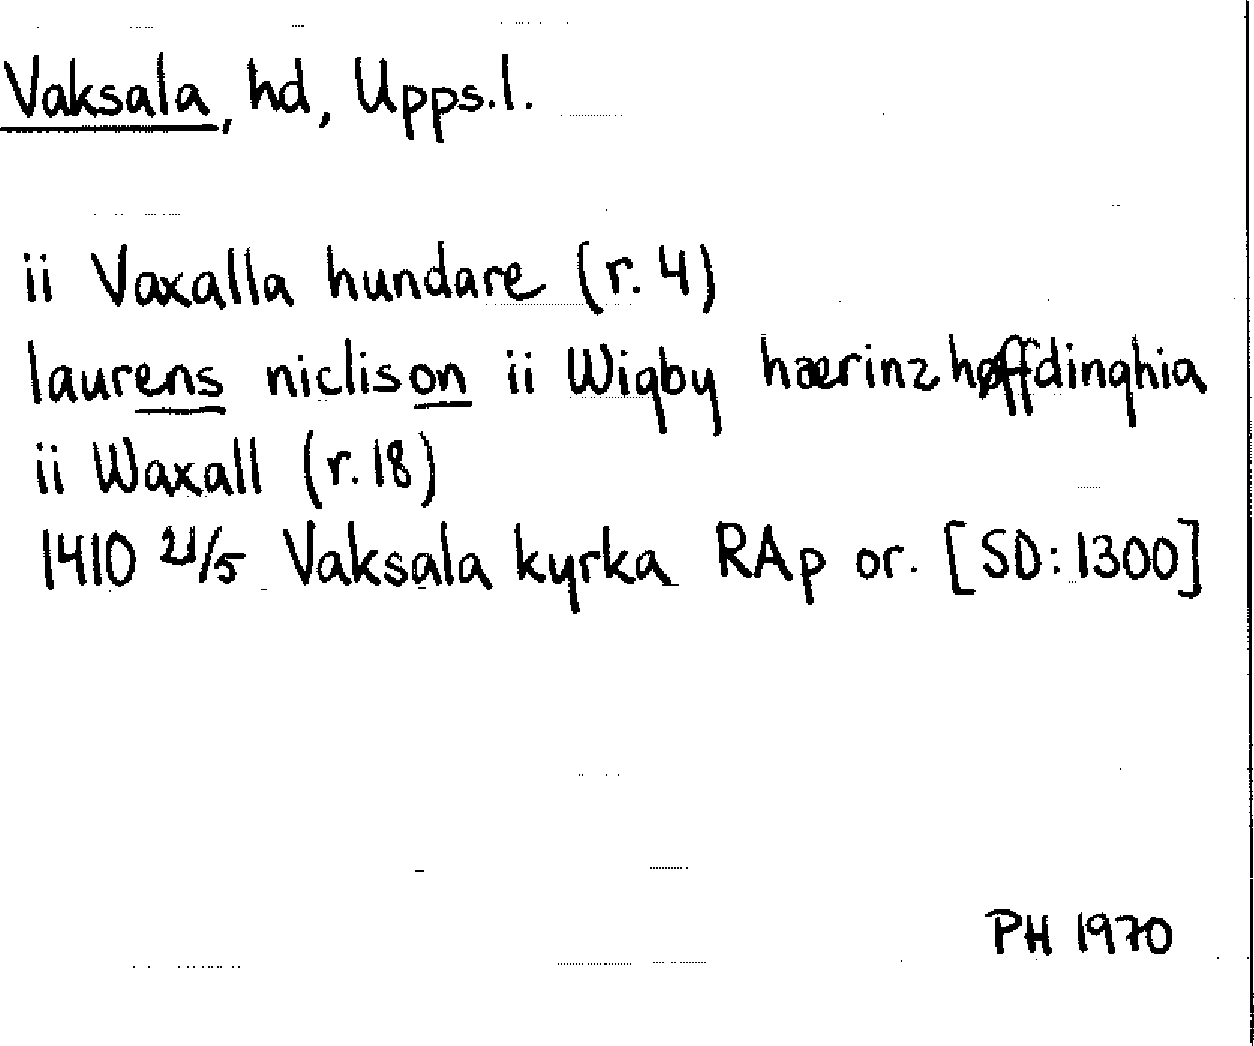 Vaksala, hd, Upps.l.
ii Vaxalla hundare (r. 4)
laurens niclison ii Wiqby hærinzhøffdinghia
ii Waxall (r. 18)
1410 21/5 Vaksala kyrka RAp or. [SD: 1300]
PH 1970